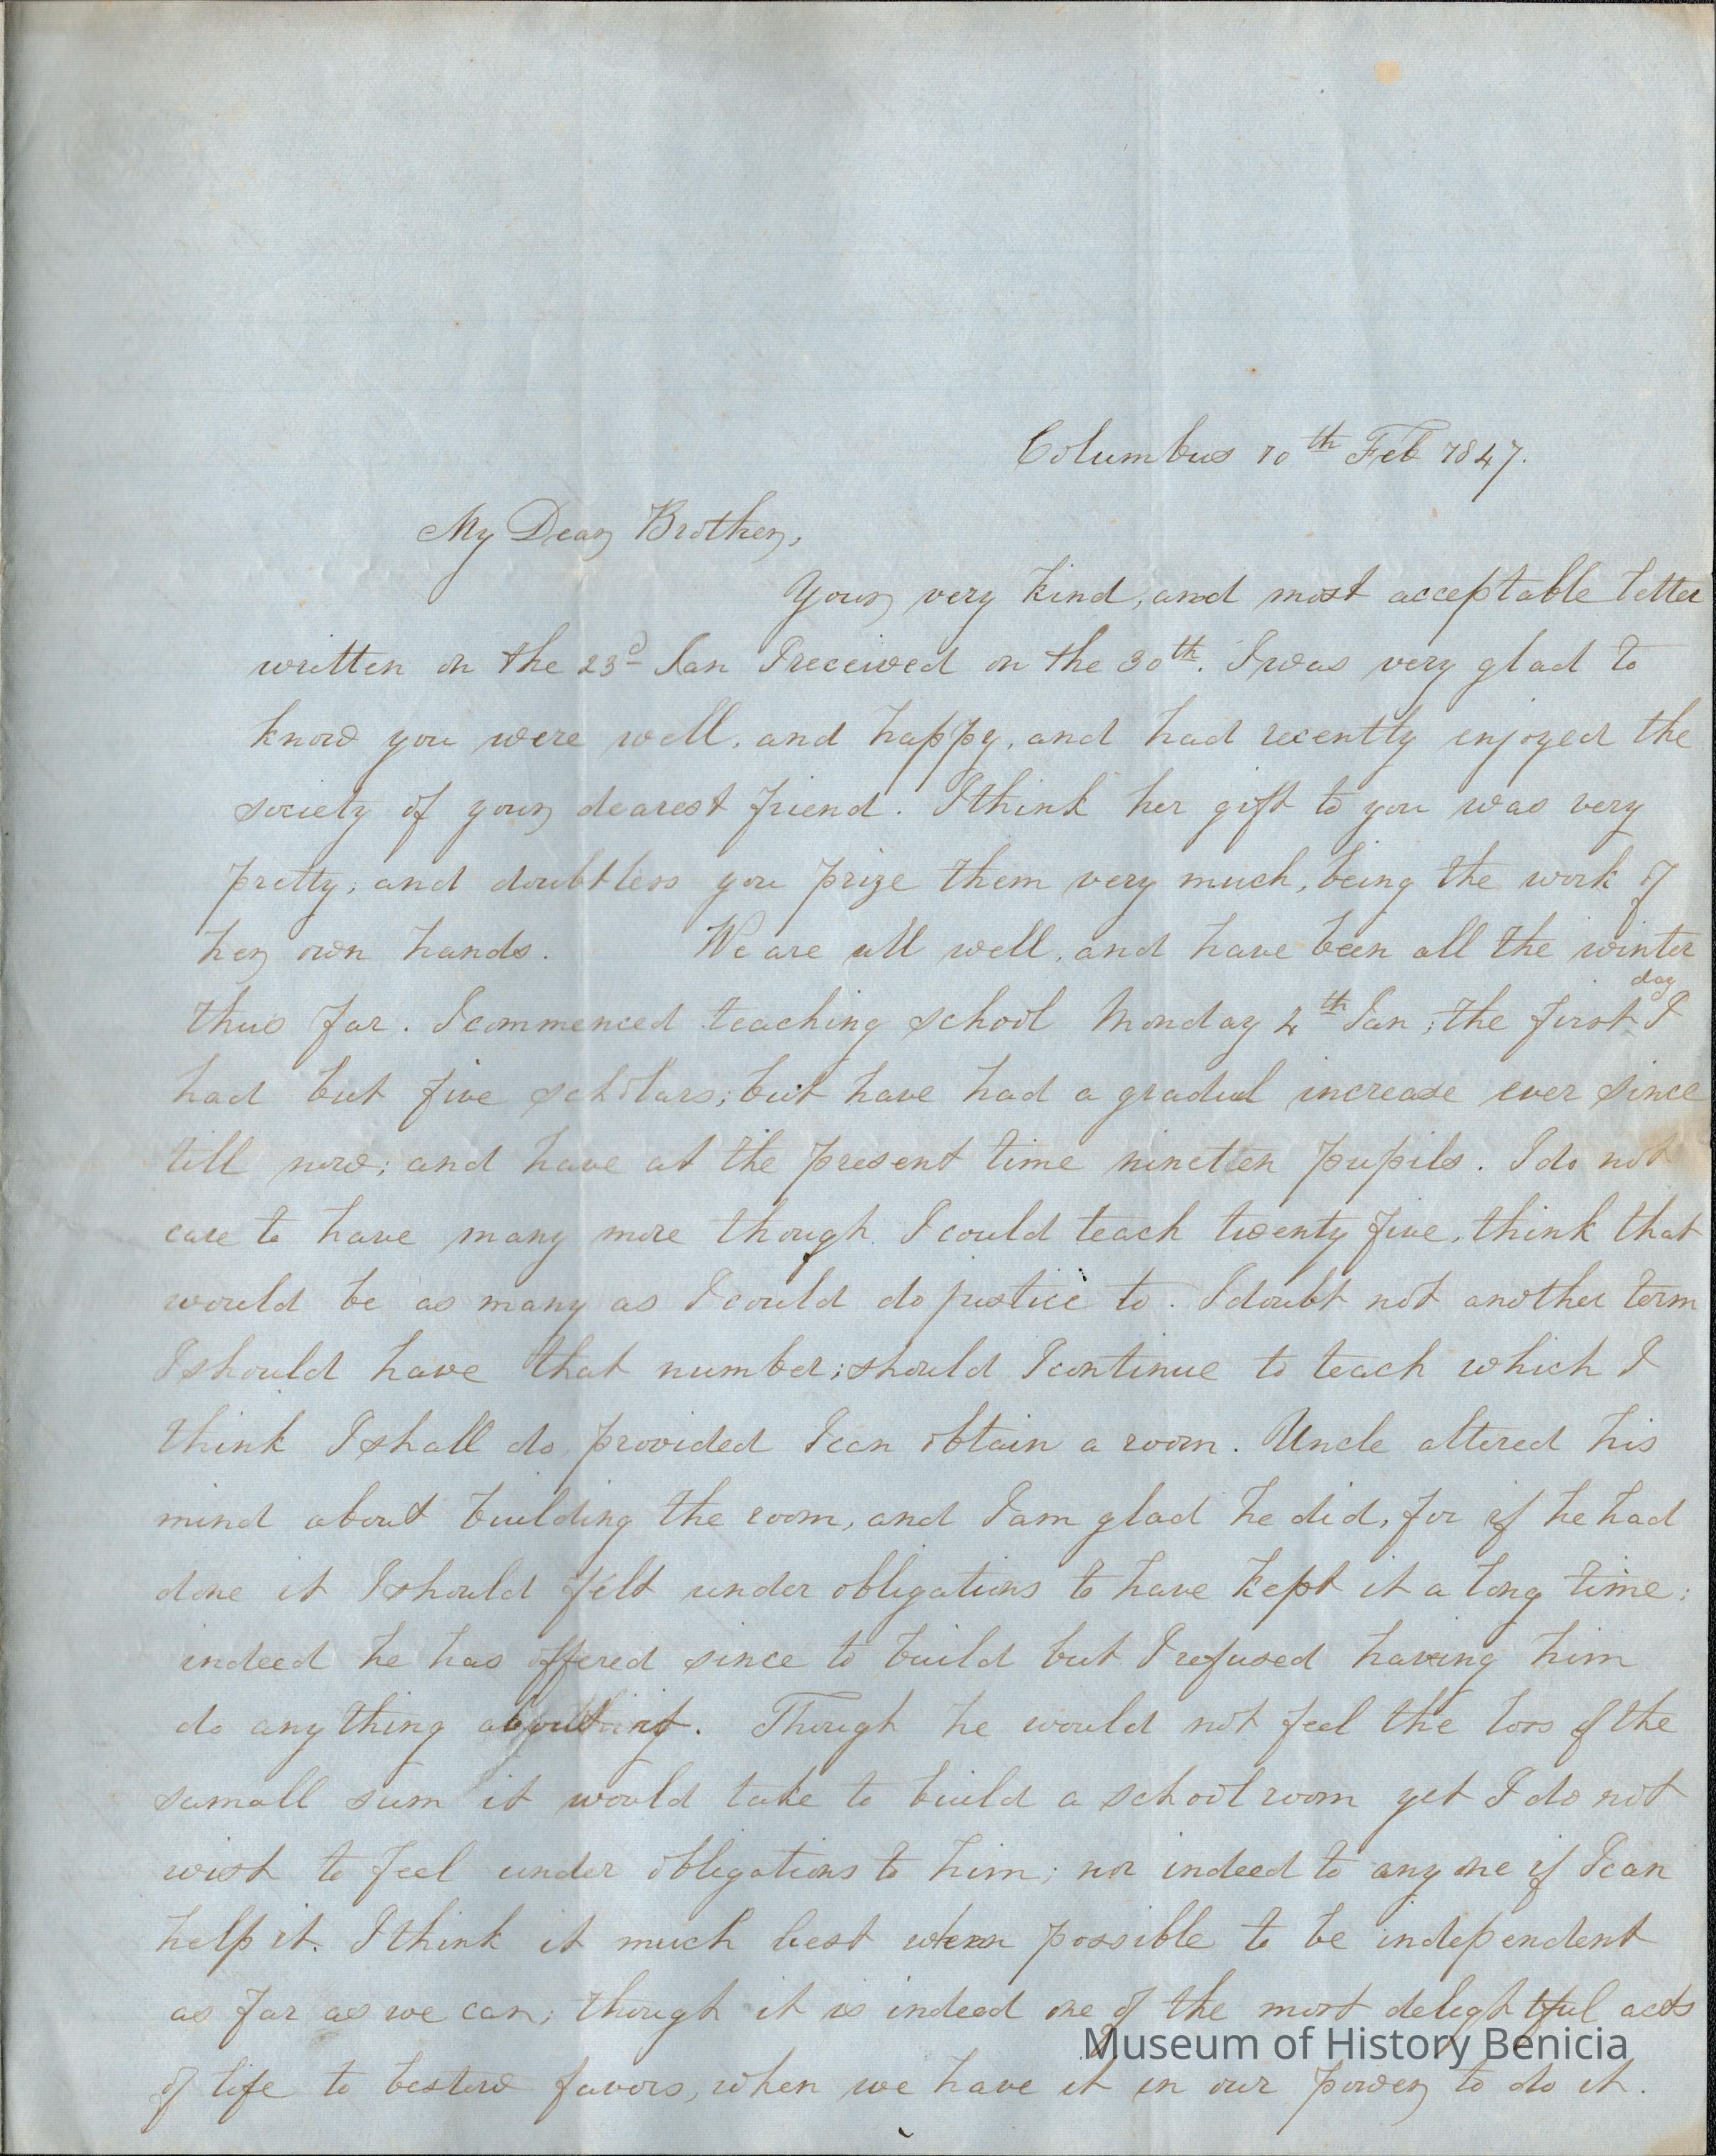 Columbus 10th Feb 1847.
My Dear Brother,
Your very kind, and most acceptable letter
written on the 23d Jan I received on the 30th. I was very glad to
know you were well, and happy, and had recently enjoyed the
society of your dearest friend. I think her gift to you was very
pretty; and doubtless you prize them very much, being the work of
her own hands. We are all well, and have been all the winter
thus far. I commenced teaching school Monday 4th Jan; the first day I
had but five scholars; but have had a gradul increase ever since
till now; and have at the present time nineteen pupils. I do not
care to have many more though I could teach twenty five, think that
would be as many as I could do justice to. I doubt not another term
I should have that number; should I continue to teach which I
think I shall do provided I can obtain a room. Uncle altered his
mind about building the room, and I am glad he did, for if he had
done it I should felt under obligations to have kept it a long time;
indeed he has offered since to build but I refused having him
do any thing about it. Though he would not feel the loss of the
samall sum it would take to build a school room yet I do not
wish to feel under obligations to him; nor indeed to any one if I can
help it. I think it much best when possible to be independent
as far as we can; though it is indeed one of the most delightful acts
of life to bestow favors, when we have it in our power to do it.
Museum of History Benicia